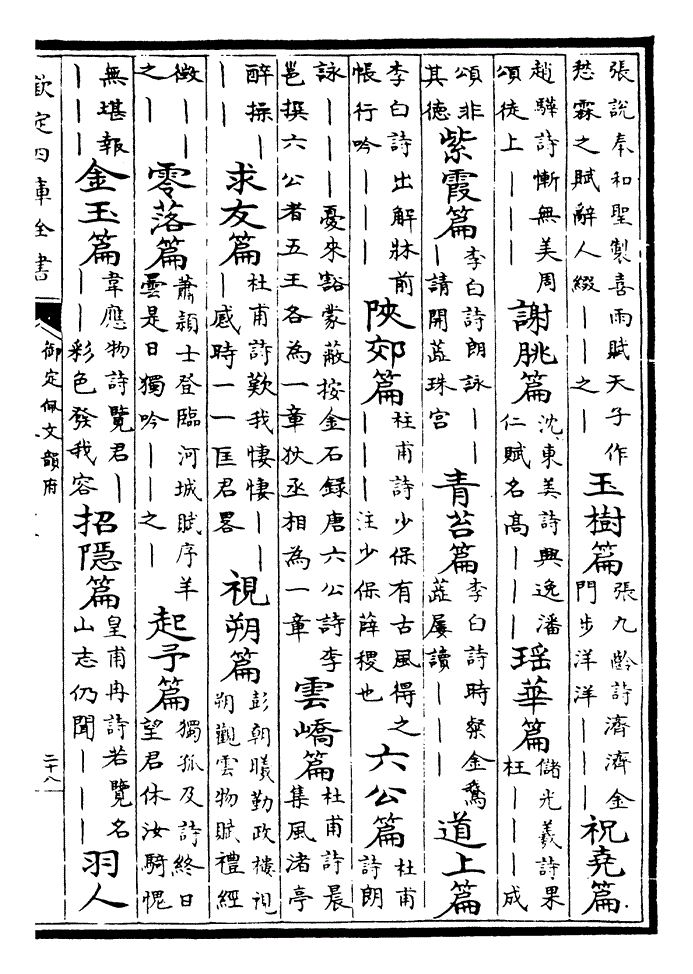 張說奉和聖製喜雨賦天子作
愁霖之賦辭人綴｜｜之｜
玉樹篇
張九齡詩濟濟金
門步洋洋｜｜｜
祝堯篇
趙驊詩慚無美周
頌徒上｜｜｜
謝朓篇
沈東美詩興逸潘
仁賦名髙｜｜｜
瑶華篇
儲光羲詩果
枉｜｜｜成
頌非
其徳
紫霞篇
李白詩朗詠｜｜
｜請開蕊珠宫
青苔篇
李白詩時餐金鵞
蕊屢讀｜｜｜
道上篇
李白詩出解牀前
帳行吟｜｜｜
陜郊篇
杜甫詩少保有古風得之
｜｜｜注少保薛稷也
六公篇
杜甫
詩朗
詠｜｜｜憂來豁蒙蔽按金石録唐六公詩李
邕撰六公者五王各為一章狄丞相為一章
雲嶠篇
杜甫詩晨
集風渚亭
醉操｜
｜｜
求友篇
杜甫詩歎我悽悽｜｜
｜感時一一匡君畧
視朔篇
彭朝曦勤政樓視
朔觀雲物賦禮經
徴｜｜
之｜｜
零落篇
蕭潁士登臨河城賦序羊
曇是日獨吟｜｜之｜
起予篇
獨孤及詩終日
望君休汝騎愧
無堪報
｜｜｜
金玉篇
韋應物詩覽君｜
｜｜彩色發我容
招隠篇
皇甫冉詩若覽名
山志仍聞｜｜｜
羽人
欽定四庫全書
御定佩文韻府
二十八